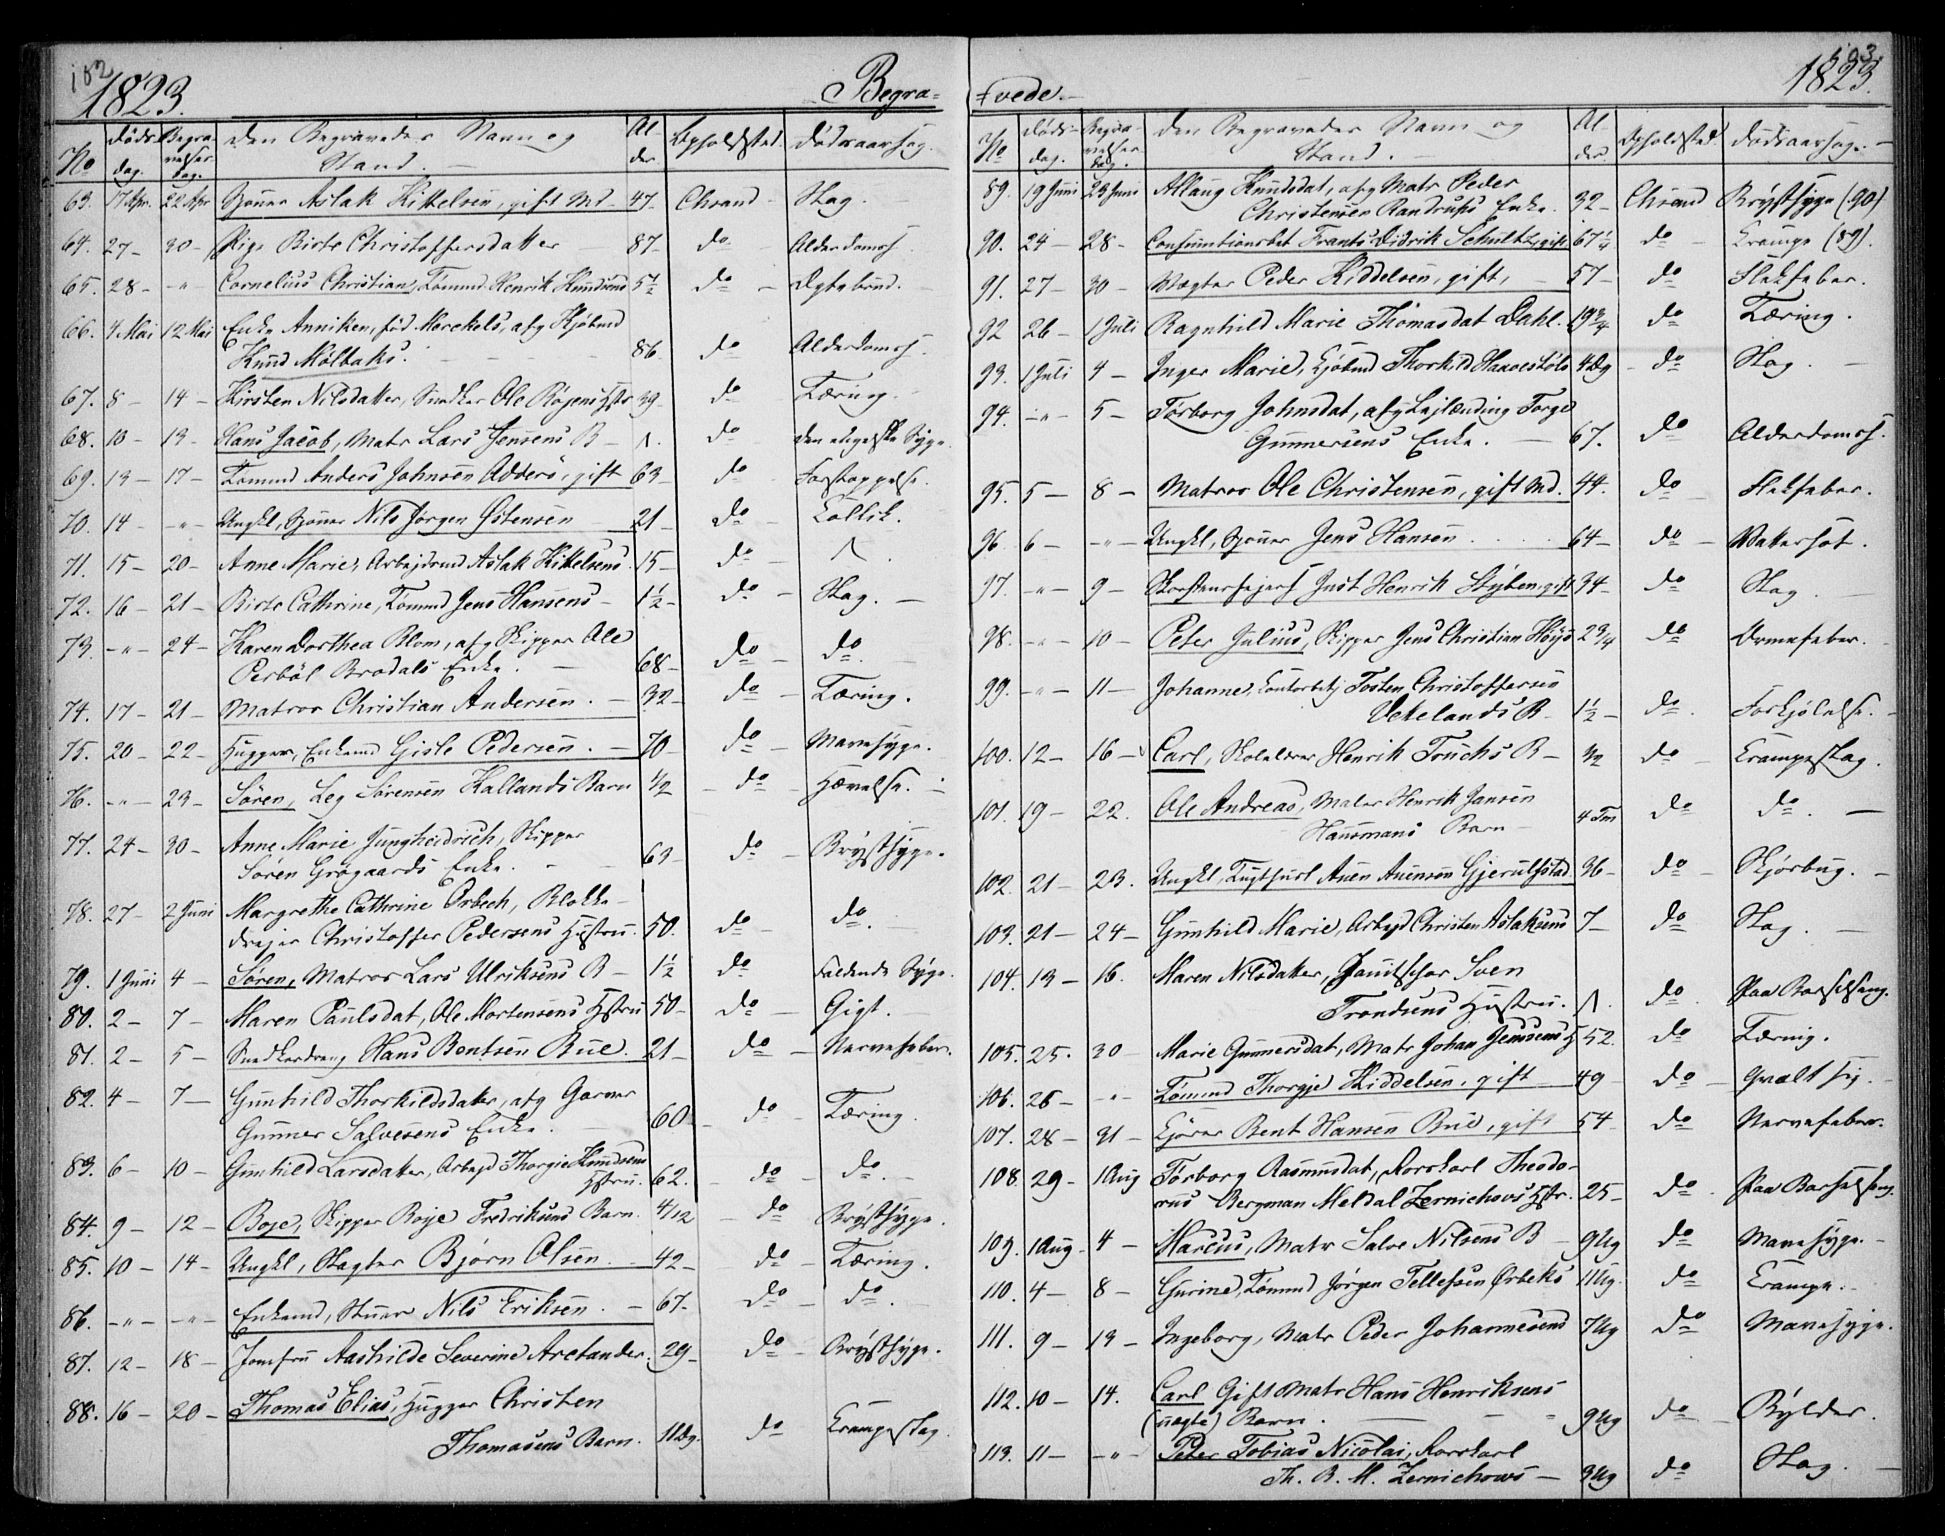 182
1823.
Begra-
No
Døds-
dag.
Begra-
velses
dag.
Den Begravedes Navn og
Stand.
Al-
der
Opholdsted.
Dødsaarsag.
63. 17 Apr. 22 Apr Aslak Kittelsen, gift Md - 47 - Chrsand - Slag.
64. 27 - 30 - Pige Birte Christoffersdatter 87 - do - Alderdomss.
65. 28 - " - Cornelius Christian, Tømmd Henrik Knudsens 5½ do -
66. 7 Mai 12 Mai Enke Anniken, fød Merckels, afg Kjøbmd
Knud Møltaks. 86. do Alderdomss.
67. 8 - 14 - Kirsten Nilsdatter, Snedker Ole Røyens Hstr 39 - do Tæring.
68. 10 - 13 - Hans Jacob, Matr Lars Jensens B - 1. do den engelske Syge.
69. 13 - 17 - Tømmd Anders Johnsen Odderø, gift 63 - do Forstoppelse.
70. 14 - " - Ungkl, Nils Jørgen Ostensen 21 - do - Collik.
71. 15 - 20 - Anne Marie, Arbejdsmd Aslak Kittelsens 15 - do -
72. 16 - 21 - Birte Cathrine, Tømmd Jens Hansens - 1½ - do - Slag. -
73. - " - 24 - Karen Dorthea Blom, afg Skipper Ole
Perbøl Brodals Enke. - 68 - do - do.
74. 17 - 21 - Matros Christian Andersen. - 32 - do - Tæring.
75. 20 - 22 - Hugger, Enkemd Gisle Pedersen. - 70 - do - Mavesyge.
76. - " - 23 - Søren, Leg Sørensen Kallands Barn ½ - do - Hævelse.
77. 24 - 30 - Anne Marie Jungheidrich, Skipper
Søren Grøgaards Enke. - 63 - do - Brystsyge.
78. 27 - 2 Juni Margrethe Cathrine Orbech, Blokke-
drejer Christoffer Pedersens Hustru. 50. do - do. -
79. 1 Juni 4 - Søren, Matros Lars Ulriksens B - 1½ do Faldende Syge.
80. 2 - 7 - Maren Paulsdat, Ole Mortensens Hstru 50 - do - Gigt.
81. 2 - 5 - Snedkerdreng Hans Bentsen Bue. 21 - do - Nervefeber.
82. 4 - 7 - Gunhild Thorkildsdatter, afg Garver
Gunner Salvesens Enke. - 60 - do - Tæring.
83. 6 - 10 - Gunhild Larsdatter, Arbejd Thorgie Knudsens
Hstru. 62. - do - do. -
84. 9 - 12 - Boje, Skipper Boije Fredriksens Barn. 4/12 - do Brystsyge.
85. 10 - 14 - Ungkl, Slagter Bjørn Olsen. - 42 - do - Tæring.
86. - " - - " - Enkemd, Stuer Nils Eriksen. - 67 - do - do. -
87. 12 - 18 - Jomfru Aashilde Severine Arctander. 29 - do - Brystsyge.
88. 16 - 20 - Thomas Elias, Hugger Christen
Thomasens Barn. 11 Dg. do Krampeslag.
1823.
vede.
No
Døds-
dag.
Begra-
velses
dag.
Den Begravedes Navn og
Stand.
Al-
der
Opholdsted
Dødsaarsag.
89. 19 Juni 23 Juni Allaug Knudsdat, afg Matr Peder
Christensen Randrups Enke. 32 - Chrsand Brystsyge (90)
90. 24 - 28 - Consumtionsbet Frants Didrik Schultz, gift 67¼ do - Krampe (89).
91. 27 - 30 - Vægter Peder Kiddelsen, gift, 57 - do Flekfeber.
92 26 - 1 Juli Ragnhild Marie Thomasdat Dahl. 19¾ do Tæring.
93. 1 Juli 4 - Inger Marie, Kjøbmd Thorkild Haavestøls 4 Dg - do - Slag. -
94. - " - 5 - Torborg Johnsdat, afg Torge
Gunnersens Enke. - 67. do - Alderdomss.
95. 5 - 8 - Matros Ole Christensen, gift Md. 44. do - Flekfeber.
96 6 - - " - Ungkl, Jens Hansen 64 - do - Vattersot.
97. - " - 9 - Skorstensfejers Just Henrik Styben, gift 34 - do Slag. -
98. - " - 10 - Peter Julius, Skipper Jens Christian Høys 2¾ do Ormefeber.
99. - " - 11 - Johanne, Contorbetj Tosten Christoffersen
Vekelands B - 1½ - do - Forkjølelse. -
100. 12 - 16 - Carl, Skolelærer Henrik Touchs B - do - Krampeslag.
101. 19 - 22. Ole Andreas, Maler Henrik Jansen
Hausmans Barn - 4 Tm do do. -
102. 21 - 23. Ungkl, Auen Auensen Gjerulfstad 36 - do - Skjørbug. -
103. 21 - 24 - Gunhild Marie, Arbejd Christen Aslaksens 7 - do Slag. -
104. 13 - 16. Maren Nilsdatter, Janitschar Sven
Trondsens Hustru. do Paa Barselseng.
105. 25. 30 - Marie Gunnersdat, Matr Johan Jenssens H 52. do - Tæring.
106. 26 - - " - Tømmd Thorgje Kiddelsen, gift 49 - do -
107. 28 - 31 - Kjører Bent Hansen Bue, gift 54 - do Nervefeber.
108. 29 - 1 Aug Torborg Rasmusdat, Korskarl Theodo-
rus Bergman Meldal Zernichows Hstr. 25 - do - Paa Barselseng.
109. 1 Aug - 4 - Marcus, Matr Salve Nilsens B 9 Ug do Mavesyge. -
110. 4 - 8 - Gurine, Tømmd Jørgen Tellefsen Ørbeks 11 Ug. do Krampe. -
111. 9 - 13 - Ingeborg, Matr Peder Johannesens 7 Ug do Mavesyge.
112. 10 - 14. Carl Gift Matr Hans Henriksens
(uægte) Barn. - 9 Ug do - Bylder.
113. 11 - - " - Peter Tobias Nicolai, Korskarl
Th. B. M. Zernichows - 3 Ug do Slag. -